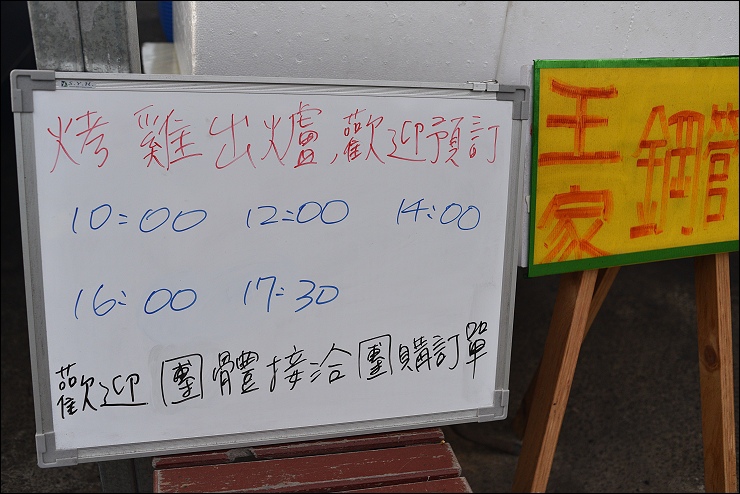 烤雞出爐,歡迎預訂
10:00 12:00 14:00
16:00 17:30
歡迎團體接洽團購訂單
王家
鋼管